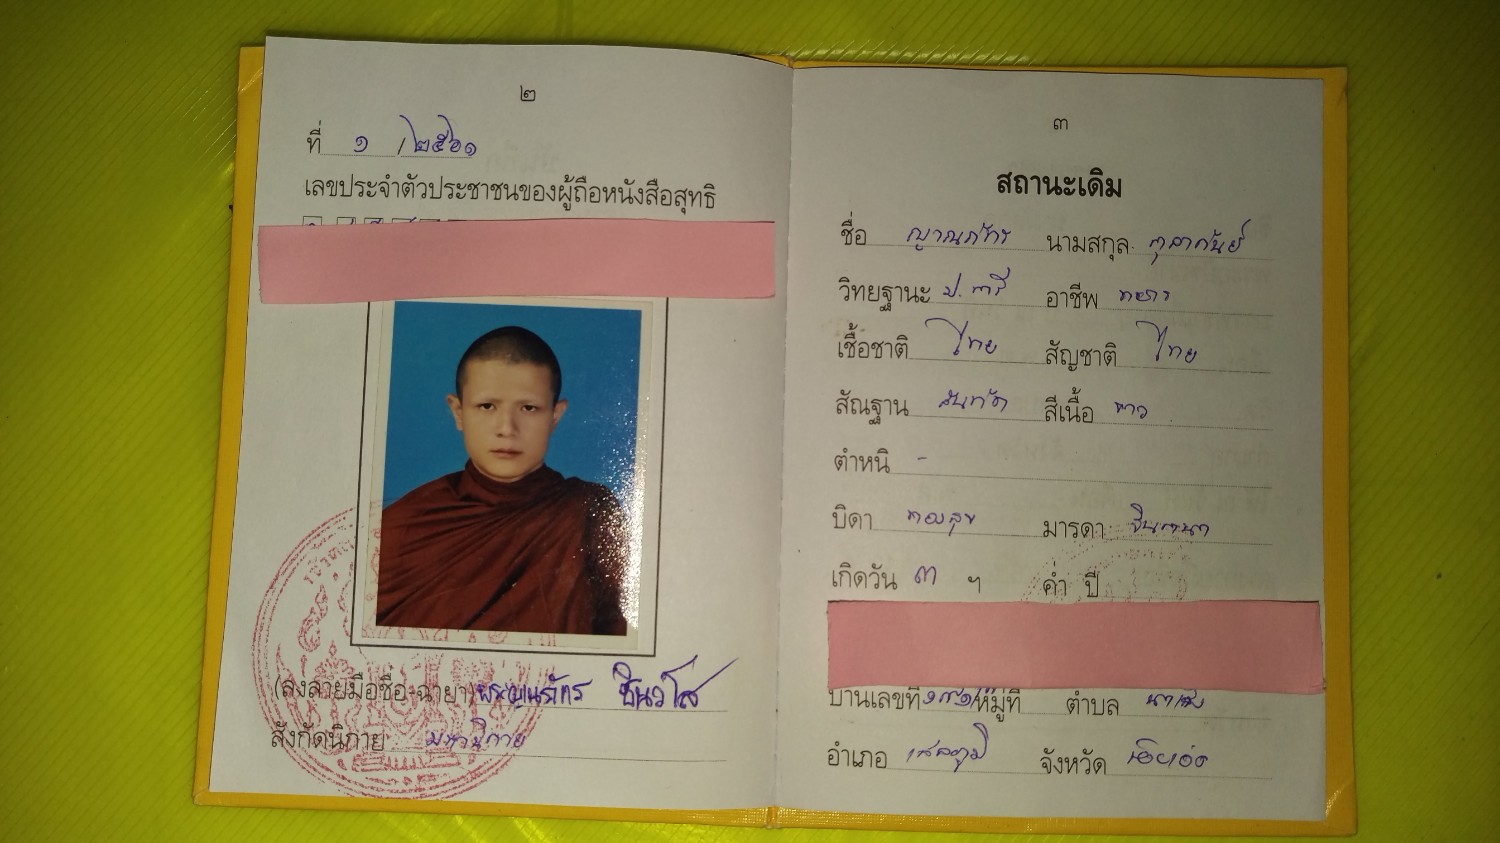 ๒
ที่ ๑ /๒๕๖๑
เลขประจำตัวประชาชนของผู้ถือหนังสือสุทธิ
(ลงลายมือชื่อ-ฉายา) พระญาณภัทร ชินวโส
สังกัดนิกาย มหานิกาย
๓
สถานะเดิม
ชื่อ ญาณภัทร นามสกุล
วิทยฐานะ ป.ตรี อาชีพ ทหาร
เชื้อชาติ ไทย สัญชาติ ไทย
สัณฐาน สันทัด สีเนื้อ ขาว
ตำหนิ -
บิดา ทองสุข มารดา จินตนา
เกิดวัน ๓ ฯ ค่ำ ปี
บ้านเลขที่ ๑๗๑ หมู่ที่ ตำบล นาแซง
อำเภอ เสลภูมิ จังหวัด ร้อยเอ็ด